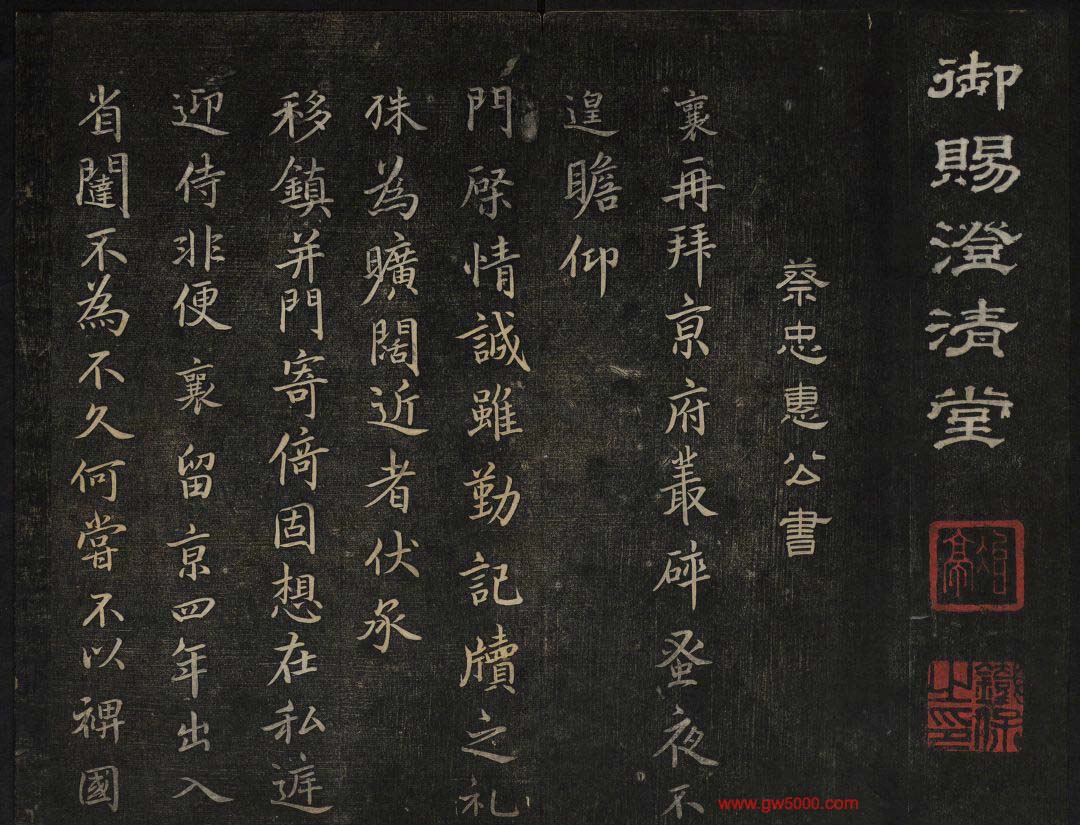 御賜澄清堂
冶亭
鐵保之印
蔡忠惠公書
襄再拜亰府叢碎蚤夜不
遑瞻仰
門棨情誠雖勤記牘之礼
殊為曠闊近者伏承
移鎮并門寄倚固想在私
迎侍非便襄留亰四年出入
省闥不為不久何嘗不以裨國
www.gw5000.com